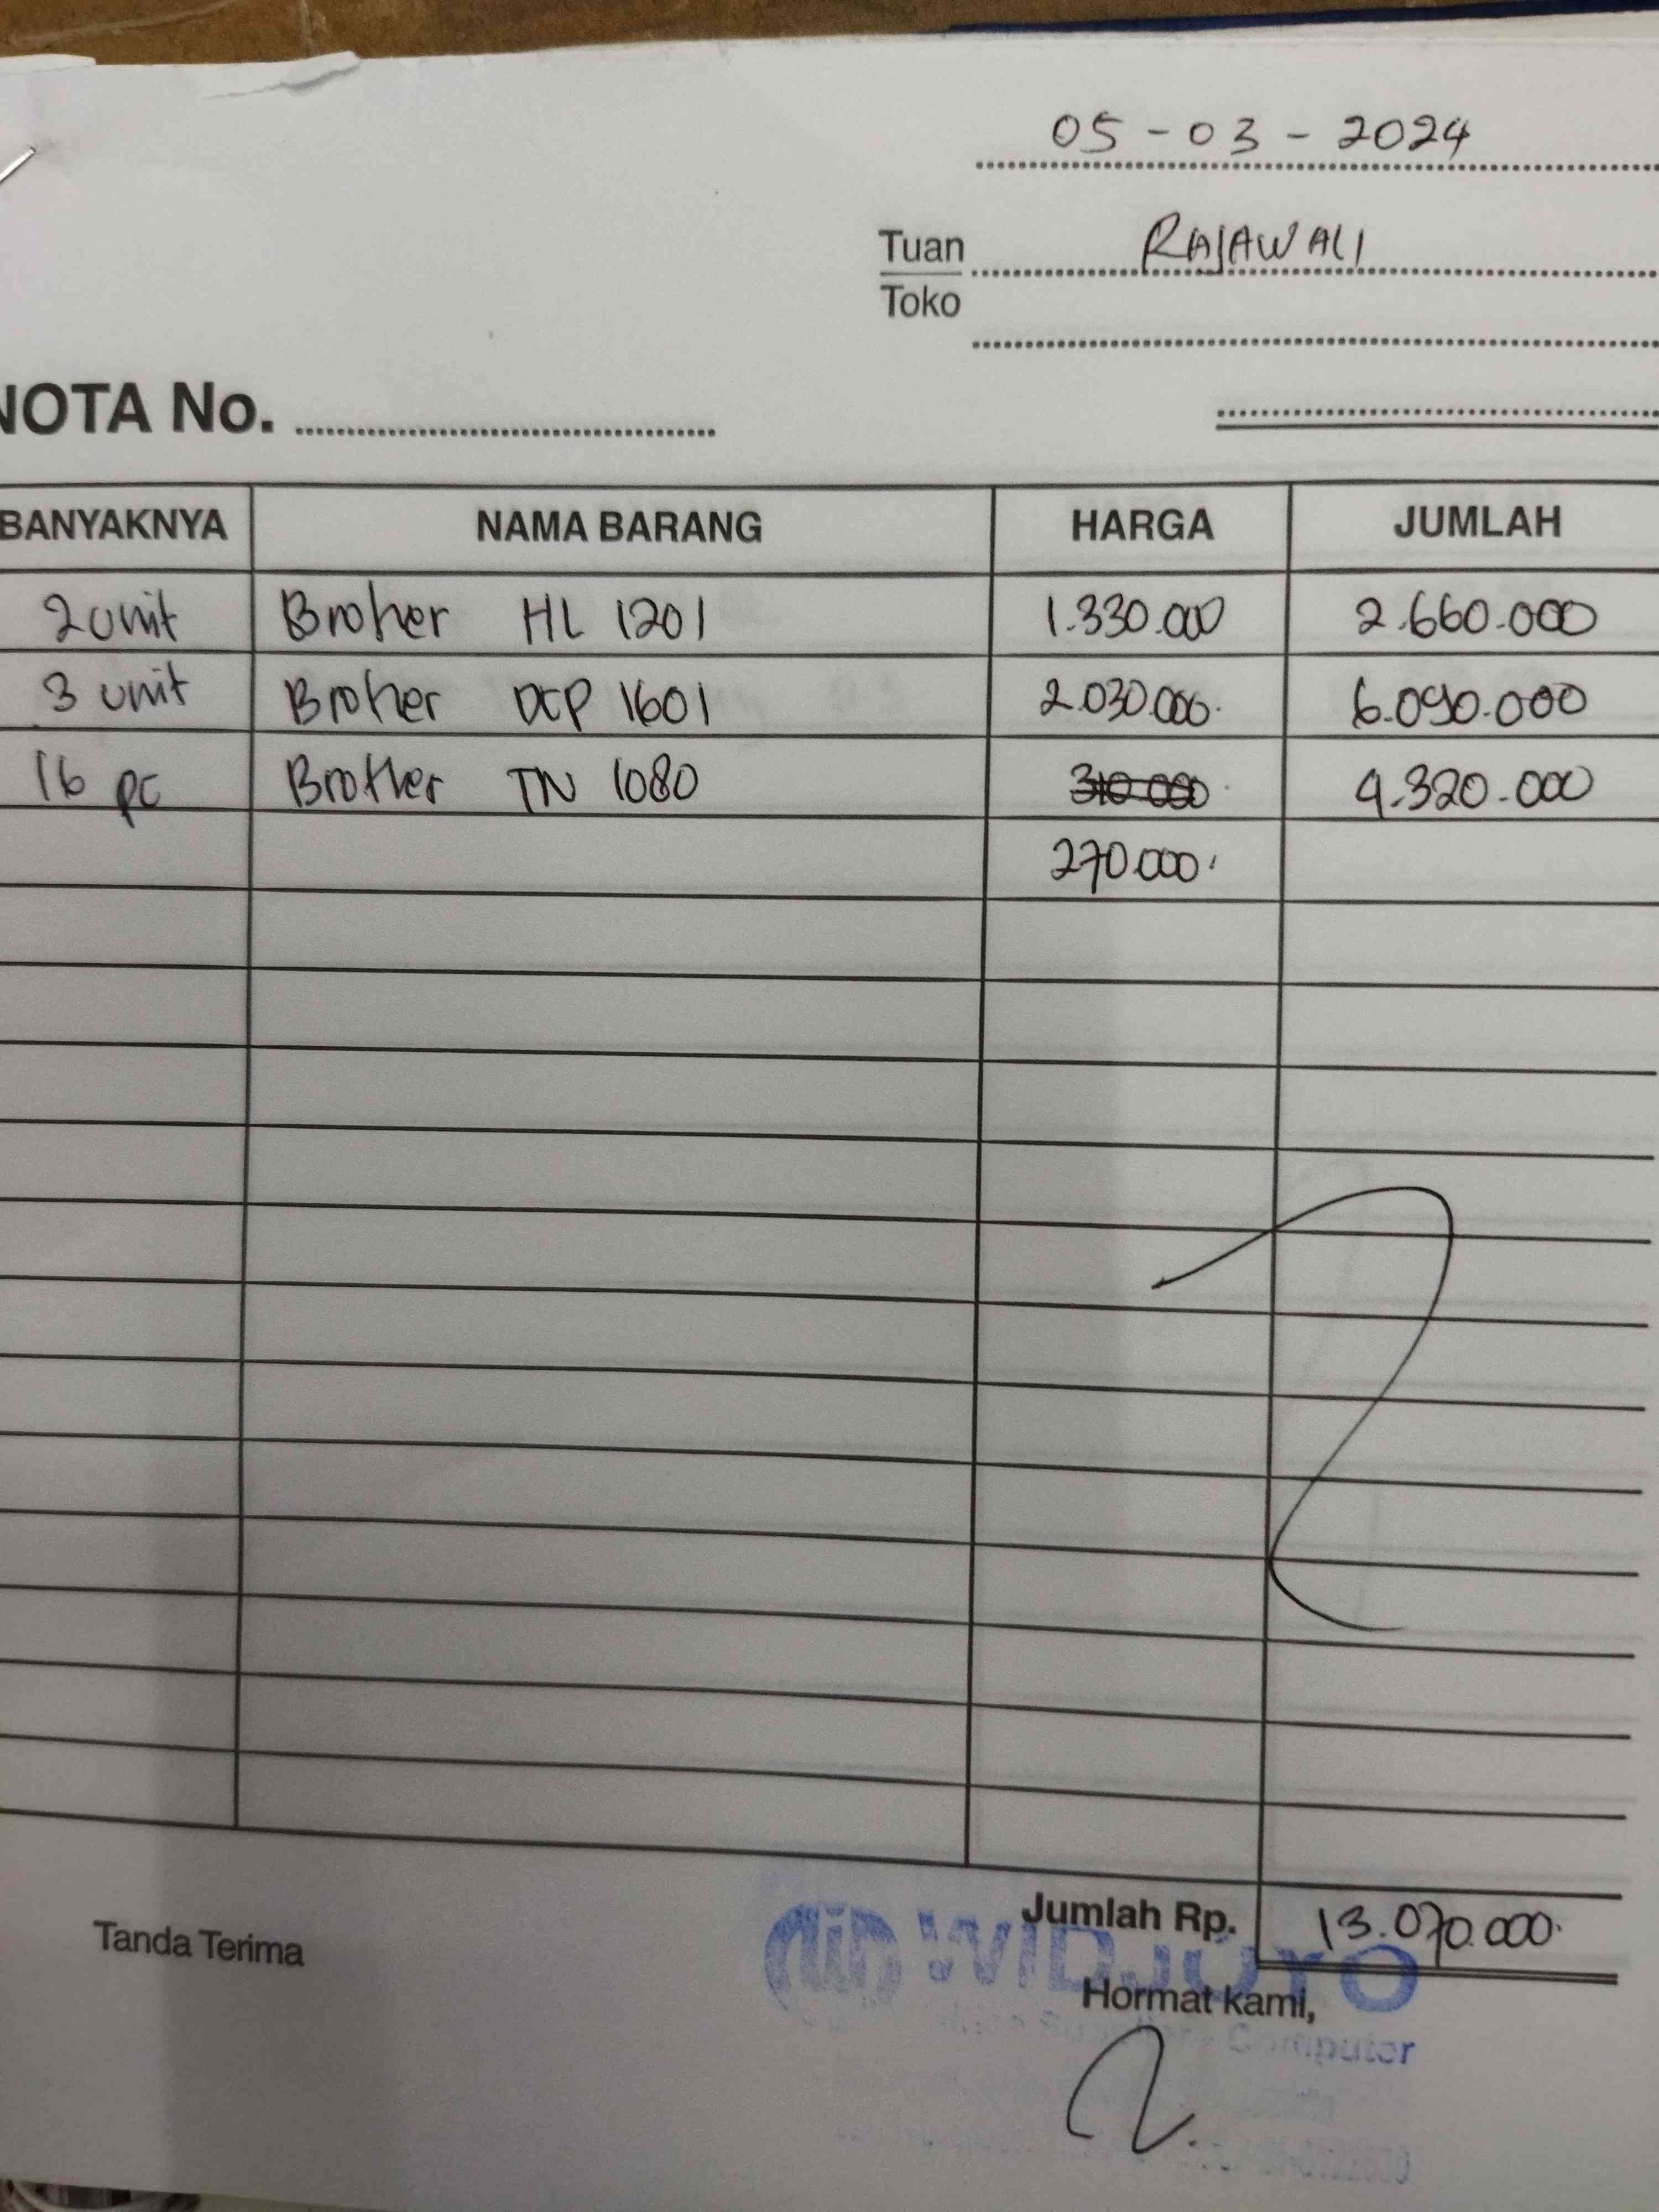 05 - 03 - 2024
Tuan RAJAWALI
Toko
NOTA No.
BANYAKNYA NAMA BARANG HARGA JUMLAH
2 unit Broher HL 1201 1.330.000 2.660.000
3 unit Broher DCP 1601 2.030.000. 6.090.000
16 pc Brother TN 1080 310 000 4.320.000
270.000.
Jumlah Rp. 13.070.000.
Tanda Terima
WIDJOYO
Hormat kami,
Computer